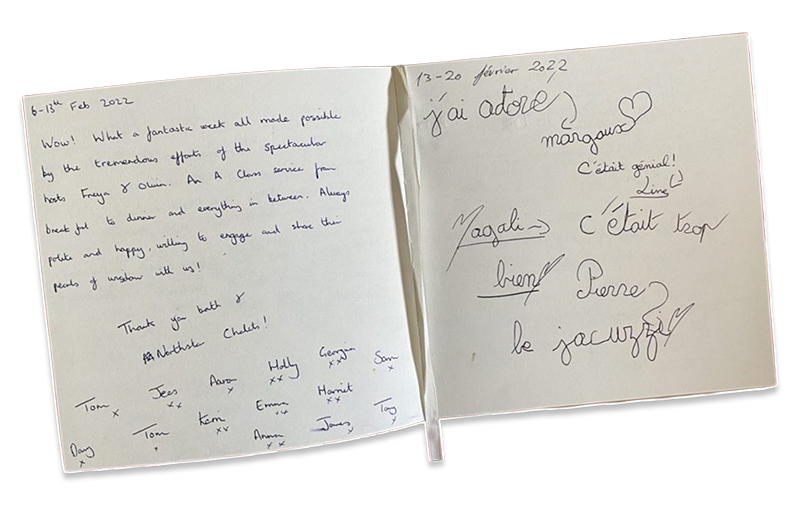 6-13th Feb 2022
Wow! What a fantastic week all made possible
by the tremendous efforts of the spectacular
hosts Freya & Oliver. An A Class service from
breakfast to dinner and everything in between. Always
polite and happy, willing to engage and share their
pearls of wisdom with us!
Thank you both &
Northstar Chalets!
Tom x Jess xx Aaron x Holly xx Georgia xx Sam x
Dang x Tom x Kerri xx Emma xx Harriet xx
Anna xx James x Tay x
13-20 février 2022
j'ai adore
margaux
C'était génial!
Line
Magali c'était trop
bien Pierre
le jacuzzi